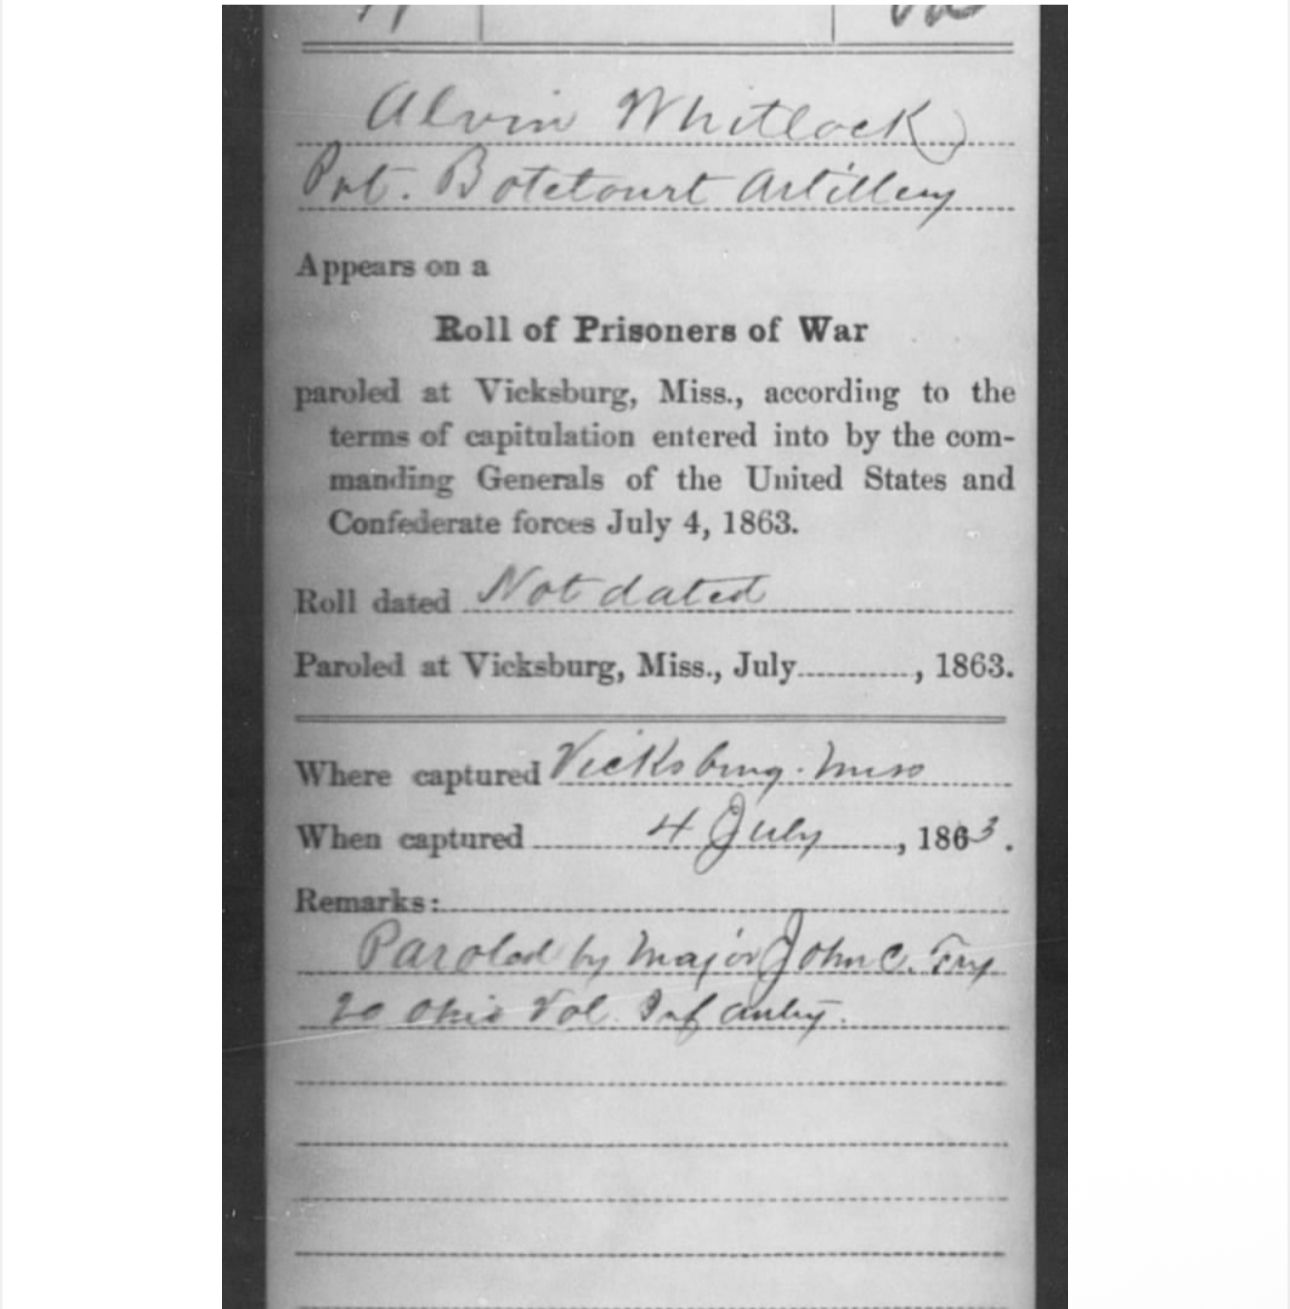 Alvin Whitlock
Pvt. Botetourt Artillery
Appears on a
Roll of Prisoners of War
paroled at Vicksburg, Miss., according to the
terms of capitulation entered into by the com-
manding Generals of the United States and
Confederate forces July 4, 1863.
Roll dated Not dated
Paroled at Vicksburg, Miss., July , 1863.
Where captured Vicksburg. Miss
When captured 4 July , 1863.
Remarks:
Paroled by Major John C. Fry
20 Ohio Vol. Infantry.